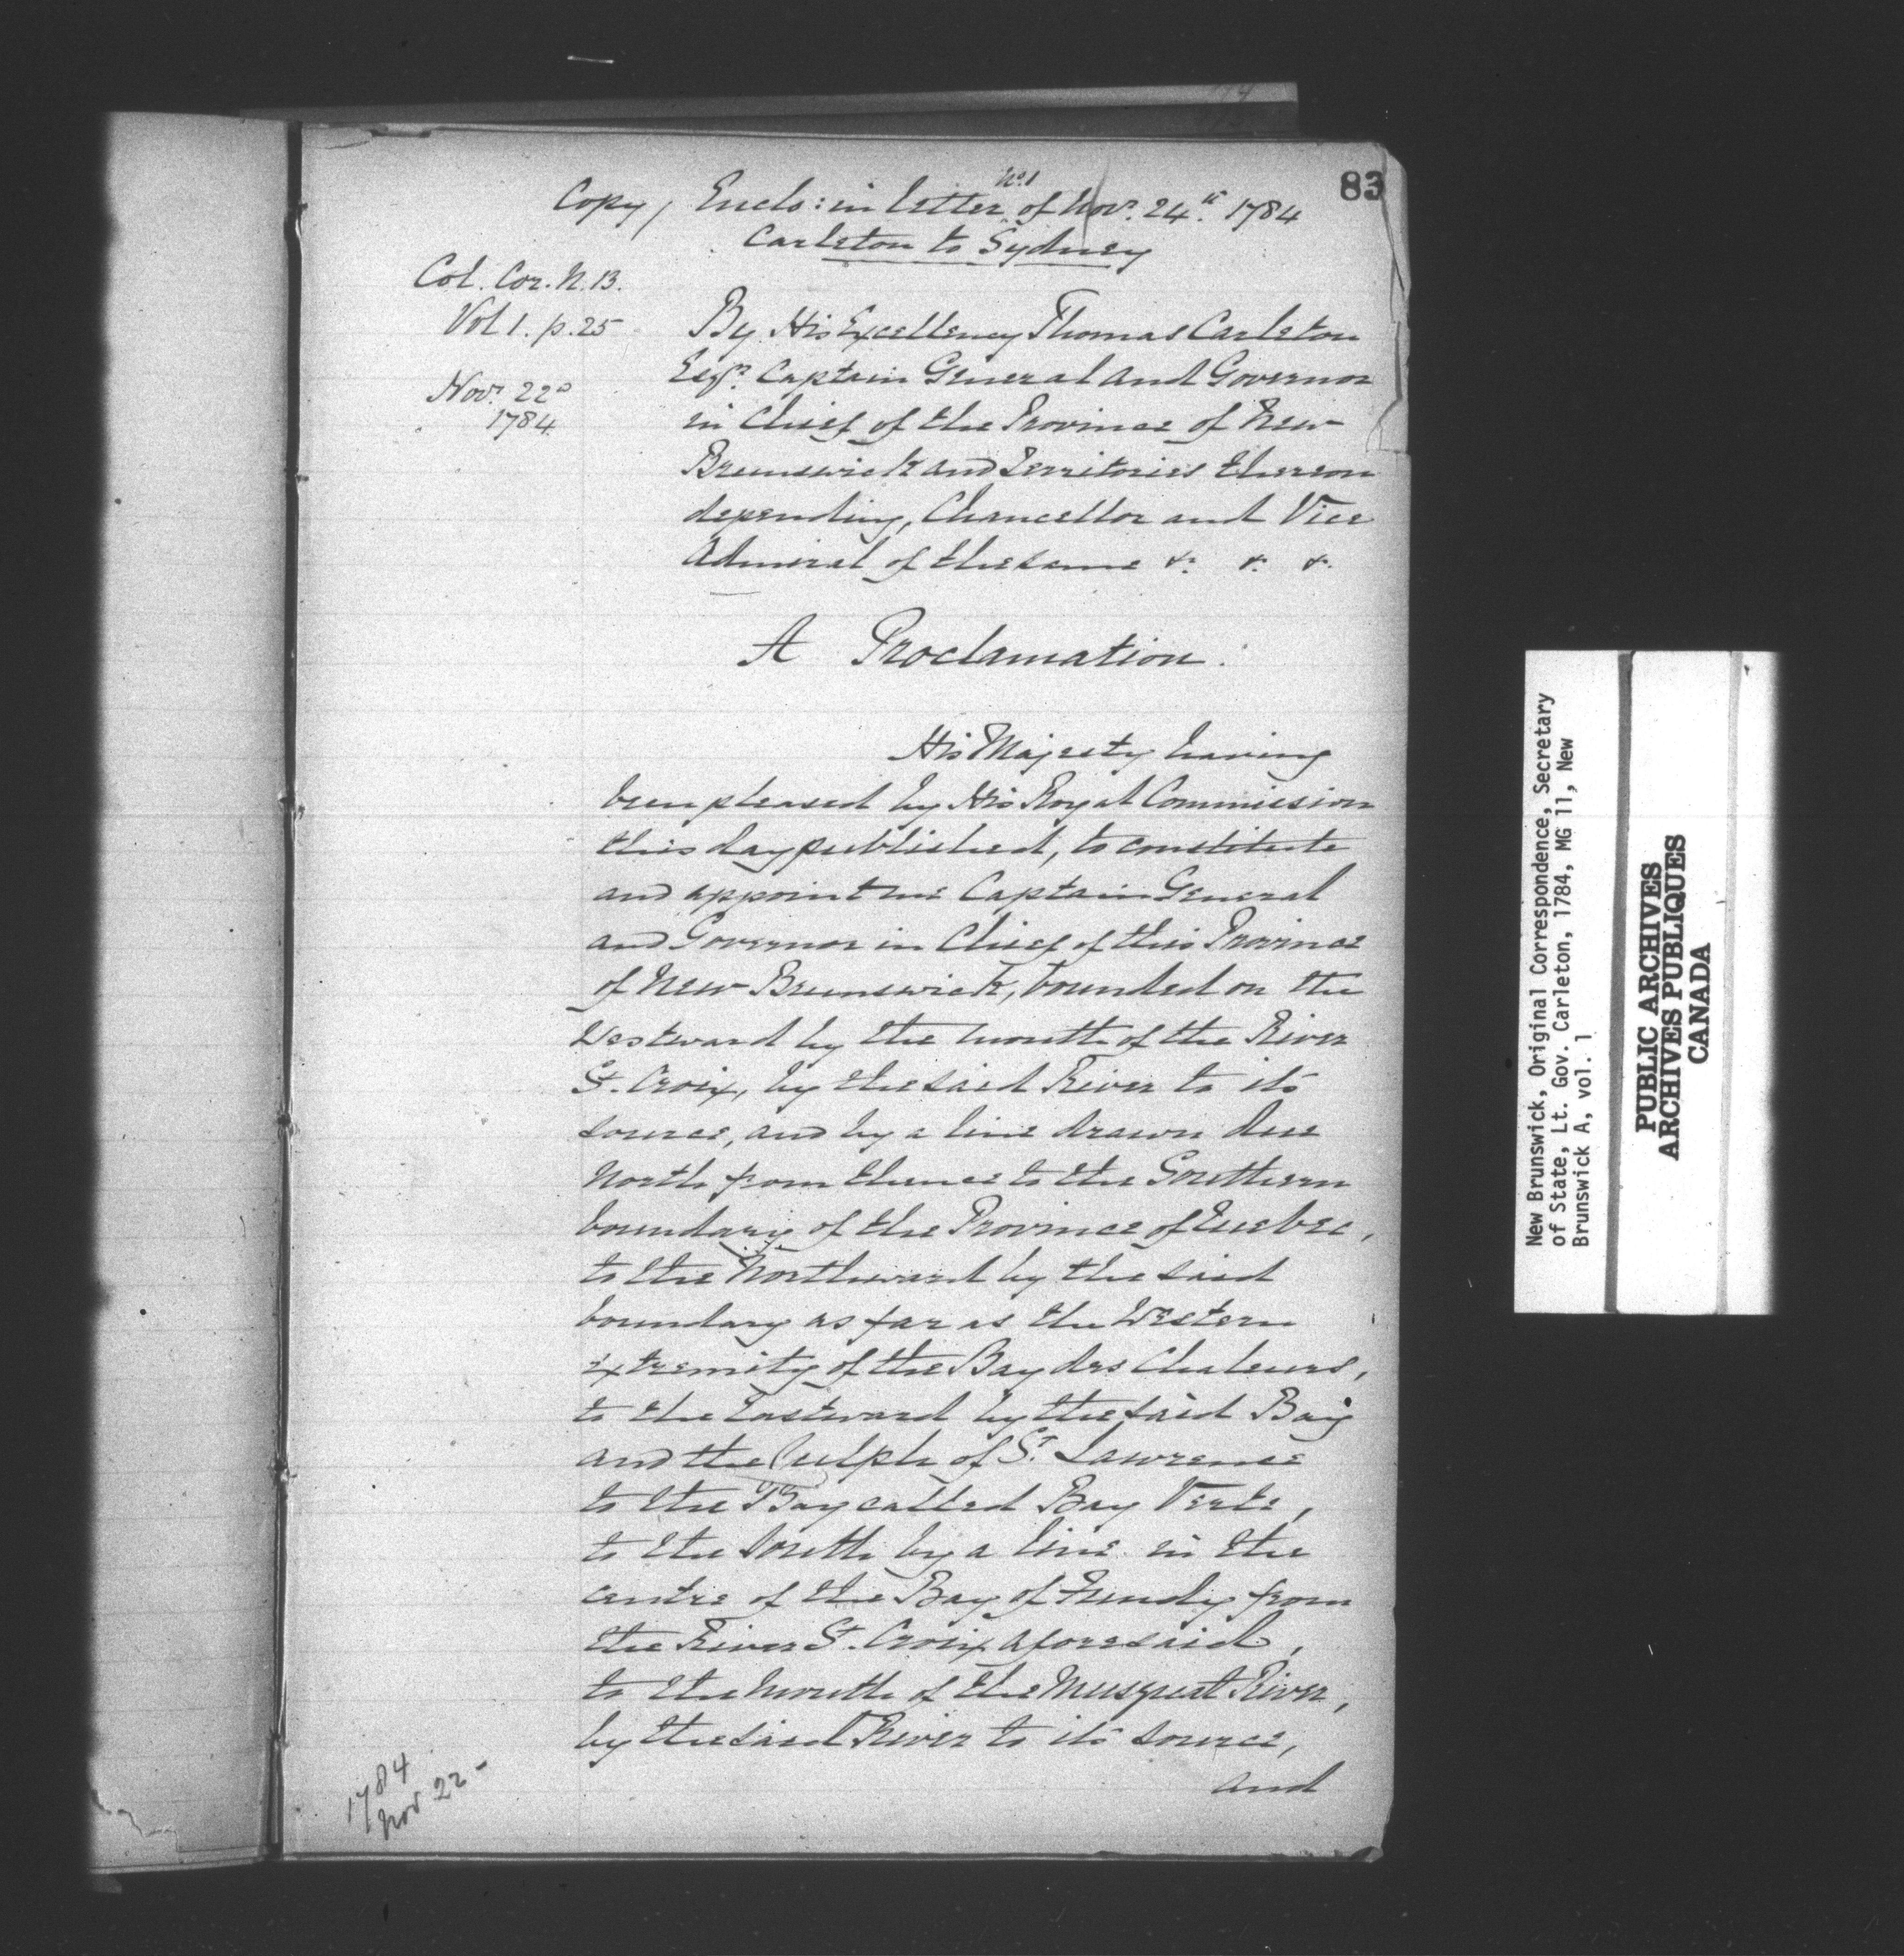 83
No. 1
Copy / Enclo: in letter of Novr. 24th 1784
Carleton to Sydney
Col. Cor. N. B.
Vol 1. p. 25
Novr. 22d
1784
By His Excellency Thomas Carleton
Esqr. Captain General and Governor
in Chief of the Province of New
Brunswick and Territories thereon
depending, Chancellor and Vice
Admiral of the same &. &. &.
A Proclamation.
His Majesty having
been pleased by His Royal Commission
this day published, to constitute
and appoint me Captain General
and Governor in Chief of this Province
of New Brunswick, bounded on the
Westward by the mouth of the River
St. Croix, by the said River to its
source, and by a line drawn due
North from thence to the Southern
boundary of the Province of Quebec,
to the Northward by the said
boundary as far as the Western
extremity of the Bay des Chaleurs,
to the Eastward by the said Bay
and the Gulph of St. Lawrence
to the Bay called Bay Verte,
to the South by a line in the
centre of the Bay of Fundy from
the River St. Croix aforesaid,
to the mouth of the Musquat River,
by the said River to its source,
and
1784
Nov 22 -
New Brunswick, Original Correspondence, Secretary
of State, Lt. Gov. Carleton, 1784, MG 11, New
Brunswick A, vol. 1
PUBLIC ARCHIVES
ARCHIVES PUBLIQUES
CANADA